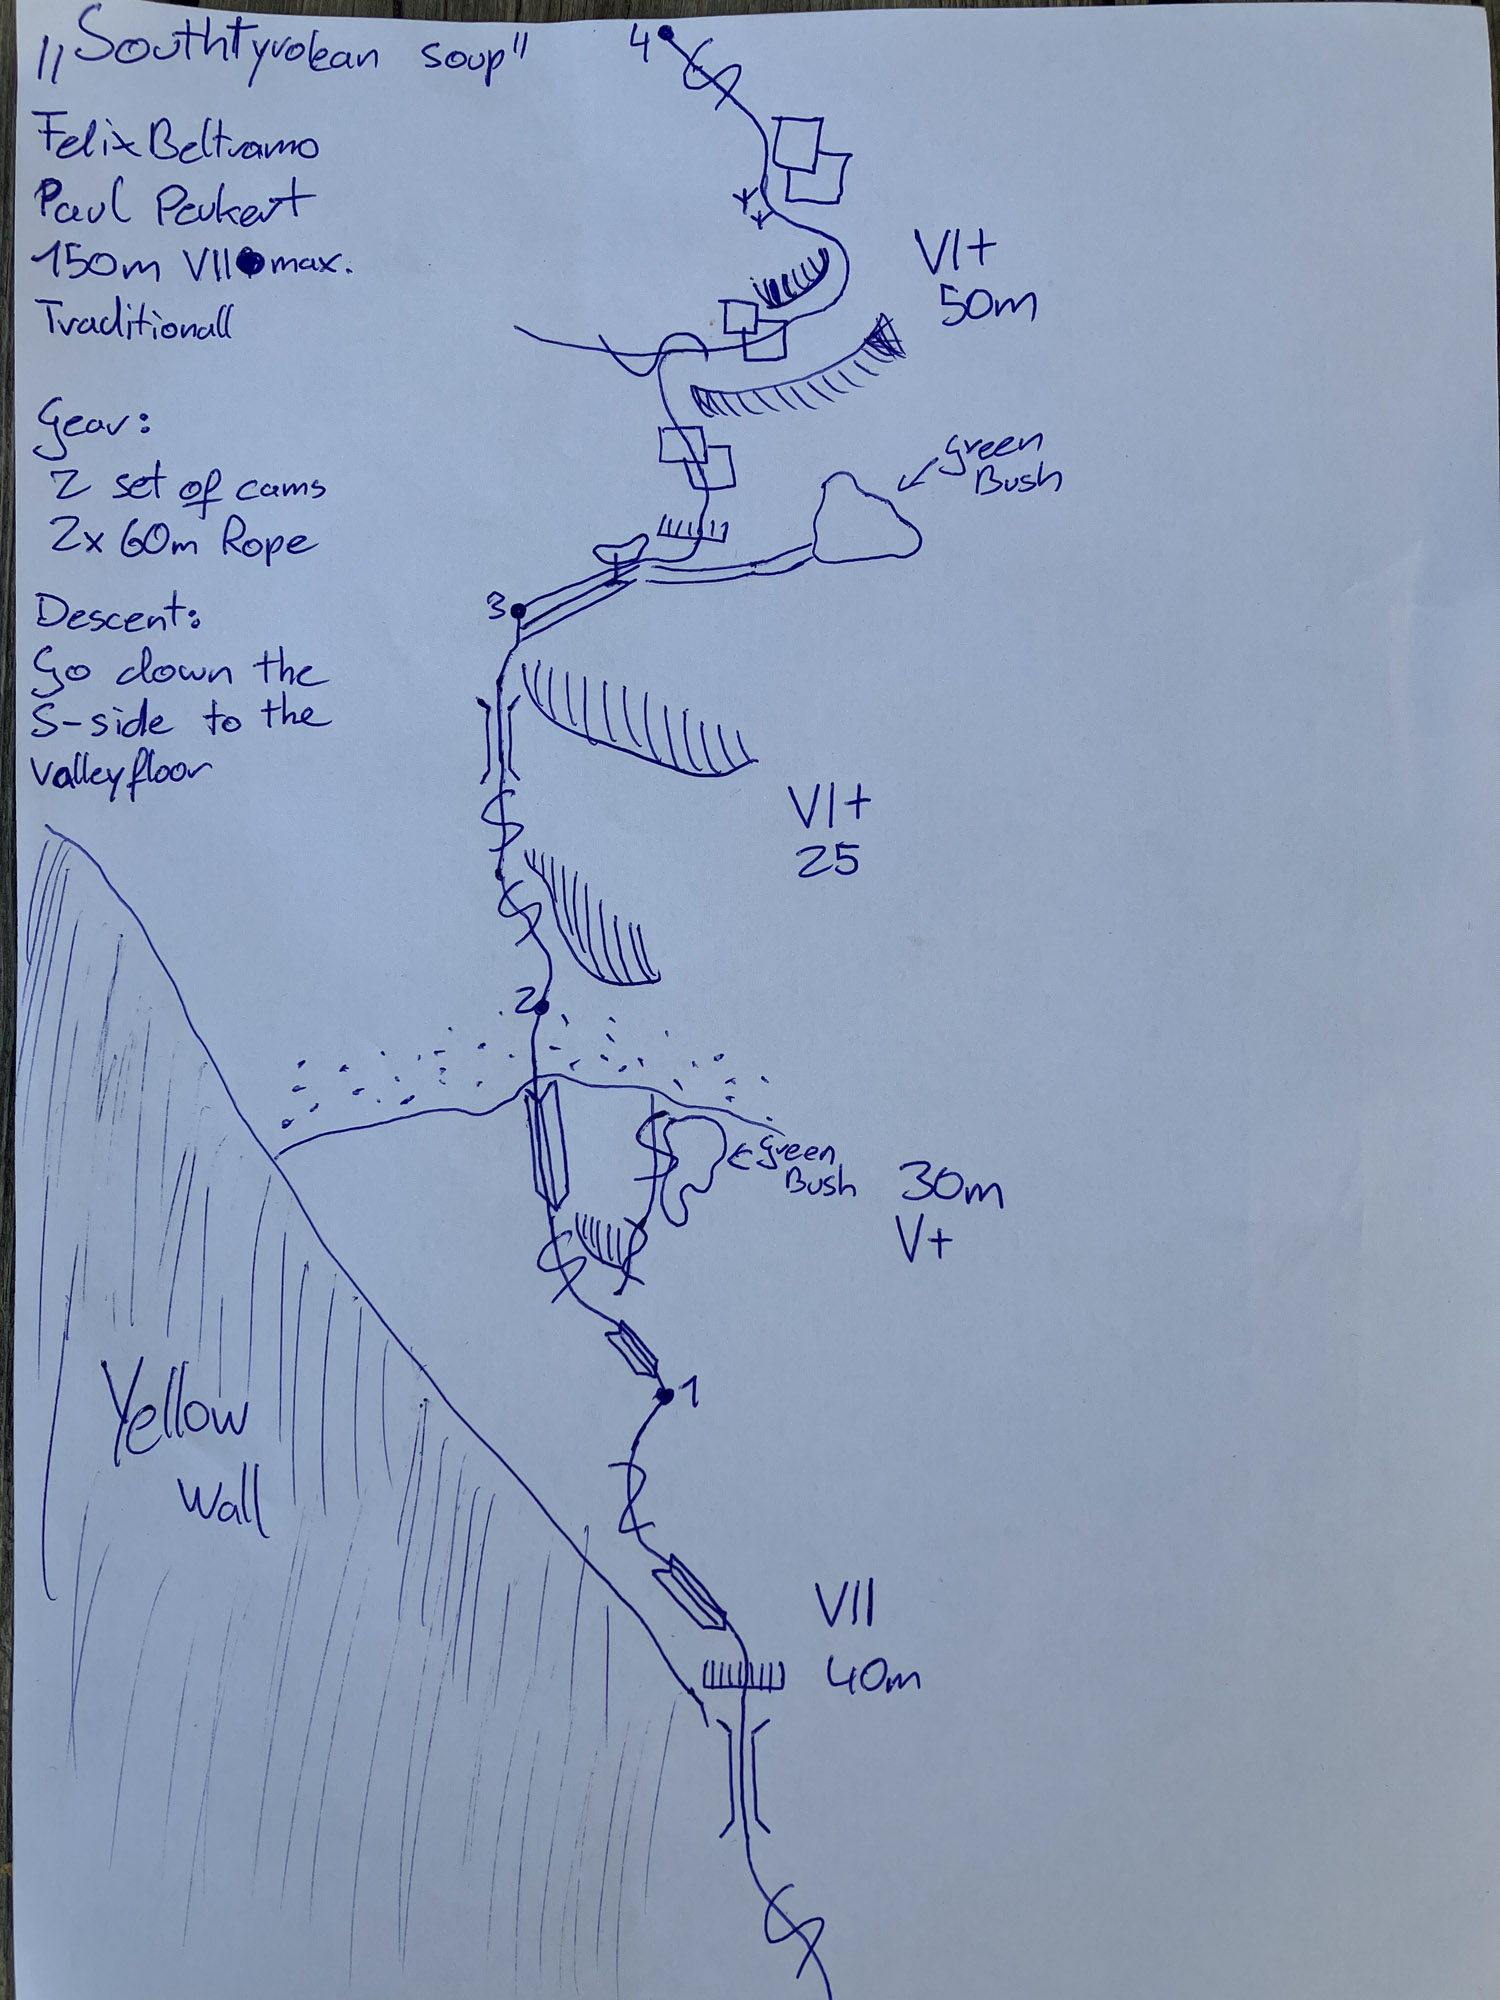 „Southtyrolean soup"
Felix Beltramo
Paul Peukert
150m VII max.
Traditionall
Gear:
2 set of cams
2x 60m Rope
Descent:
Go down the
S-side to the
Valleyfloor
4
VI+
50m
Green
Bush
3
VI+
25
2
Green
Bush
30m
V+
1
Yellow
Wall
VII
40m